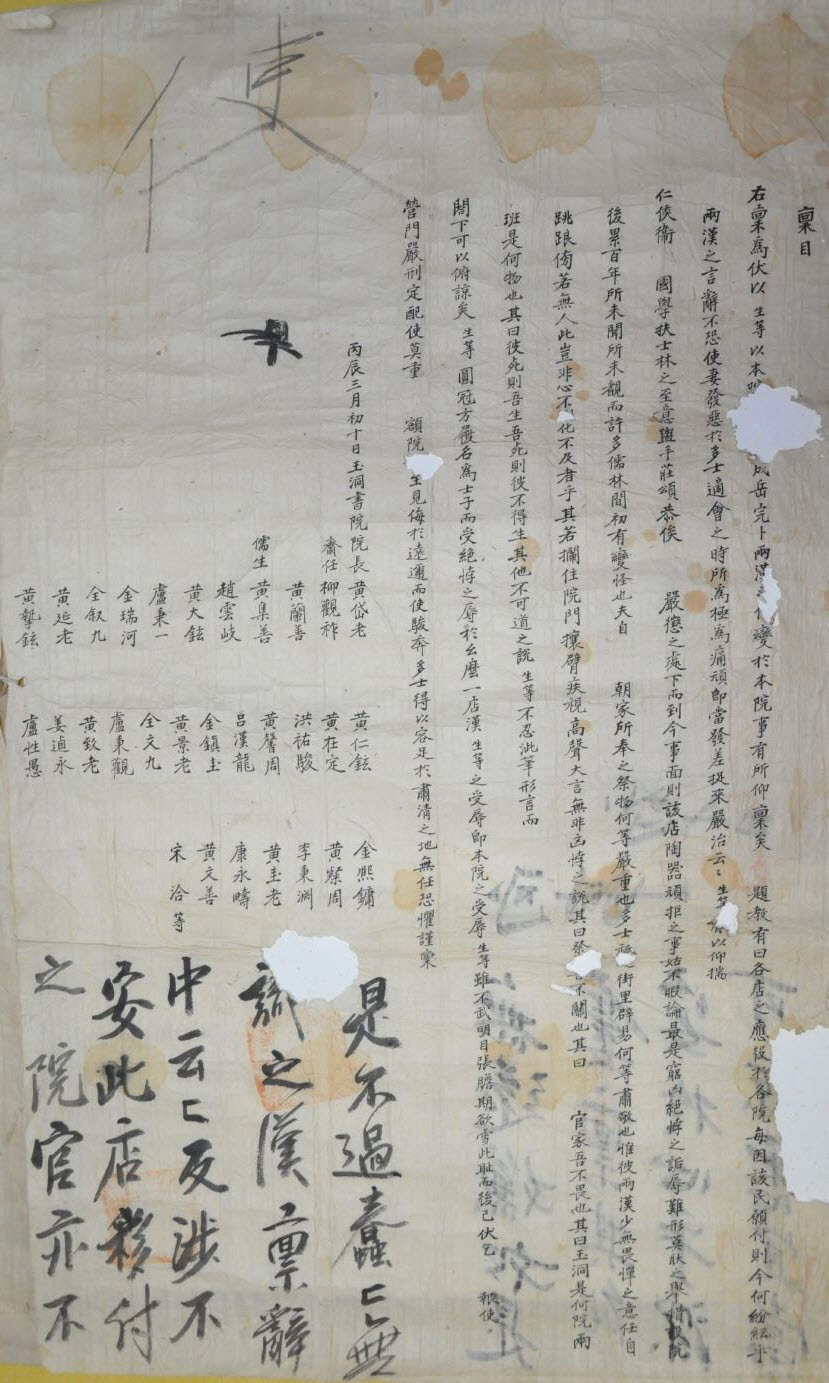 稟目
右稟爲伏以 生等以本 成岳完卜兩漢 變於本院事有所仰稟矣 題敎有曰各店之應役於各院每因該民願付則今何紛紜乎
兩漢之言辭不恐使妻發惡於多士適會之時所爲極爲痛頑卽當發差捉來嚴治云〻 生等 以仰揣
仁侯衛 國學扶士林之至意盥手莊頌恭俟 嚴德之處下而到今事面則該店陶器頑拒之事姑不暇論最是窮凶絕悖之詬辱難形莫狀之擧措 院
後累百年所未聞所未覩而許多儒林間初有變怪也夫自 朝家所奉之祭物何等嚴重也多士 街里辟易何等肅敬也惟彼兩漢少無畏憚之意任自
跳踉傍若無人此豈非心不 化不及者乎其若攔住院門攘臂疾視高聲大言無非凶悖之說其曰祭 不關也其曰 官家吾不畏也其曰玉洞是何院兩
班是何物也其曰彼死則吾生吾死則彼不得生其他不可道之說 生等不忍泚筆形言而
閤下可以俯諒矣 生等 圓冠方屨名爲士子而受絕悖之辱於幺麽一店漢 生等之受辱卽本院之受辱 生等雖不武明目張膽期欲雪此恥而後已伏乞 報使
營門嚴刑定配使莫重 額院 至見侮於遠邇而使駿奔多士得以容足於肅清之地無任恐懼謹稟
丙辰三月初十日玉洞書院院長 黃岱老 黃仁鉉 金熙鏞
齋任 柳觀祚 黃在定 黃 周
黃蘭善 洪祐駿 李秉淵
儒生 黃集善 黃馨周 黃圭老
趙雲岐 呂漢龍 康永疇
黃大鉉 金鎭圭 黃文善
盧秉一 黃景老 宋洽 等
金瑞河 全文九
全叙九 盧秉觀
黃延老 黃致老
黃 鉉 姜道永
盧性愚
使
是不過蠢〻無
識之漢稟辭
中云〻反涉不
安此店移付
之院官亦不